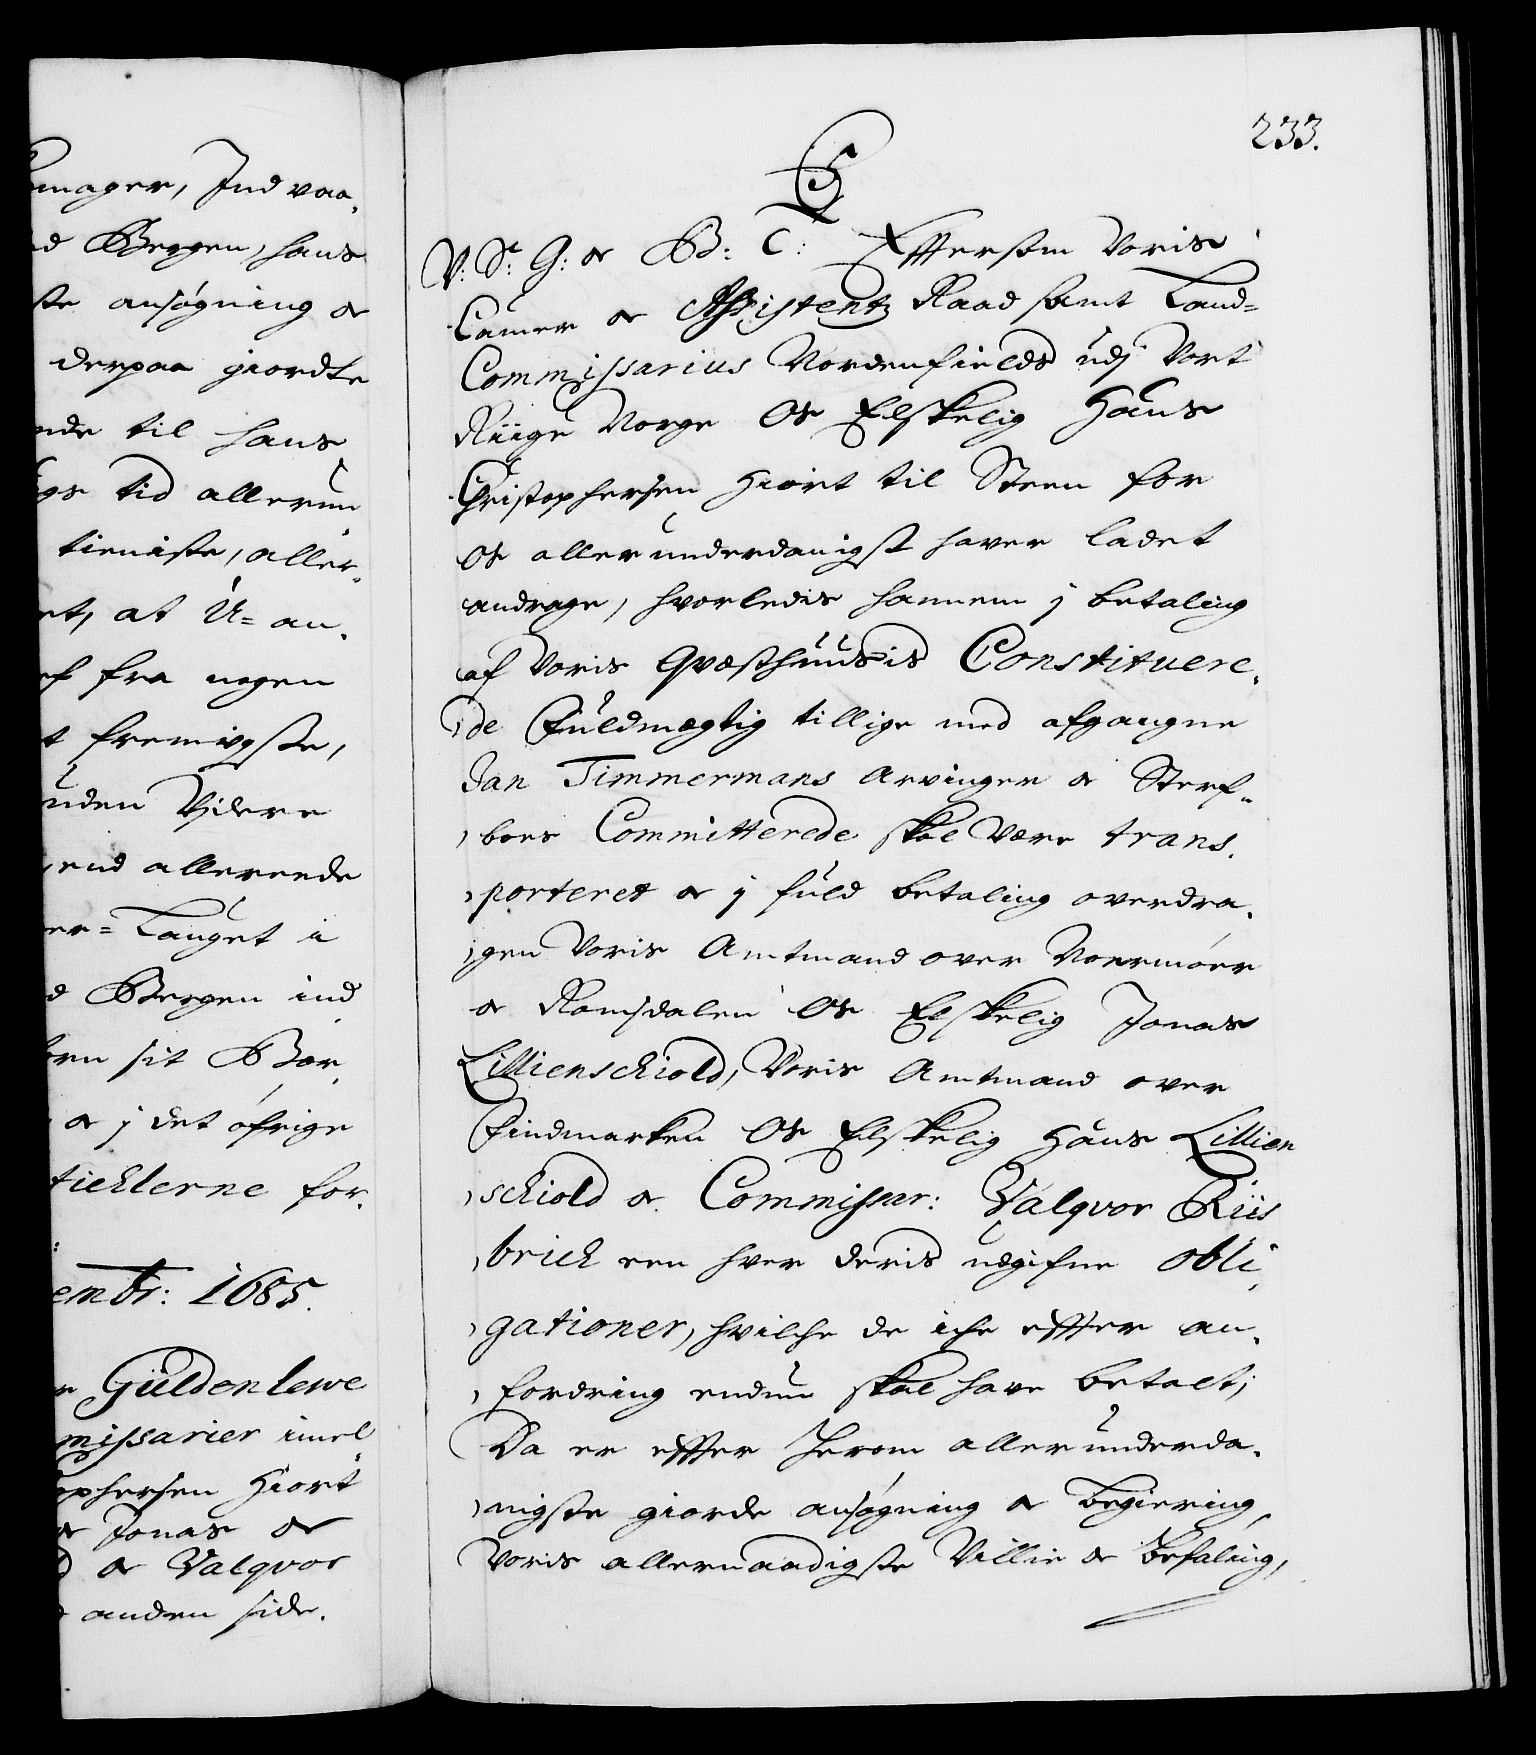 omager, Indvaa,
d Bergen, hans
ste ansøgning oc
derpaa giordte
nde til hans
igs tid allerun
tieniste, aller,
et, at U= an,
ef fra nogen
t fremvgste,
uden Videre
end allereede
er= Lauget i
d Bergen ind
ørn sit Bor,
oc j det øfrige
ticklerne for,
embr: 1685.
r Güldenlewe
missarier imel
ophersen Hiort
oc Jonas oc
d oc Valqvor
anden side.
233.
C5
V: St: G: oc Bd: C: Effersom Voris
Camer oc Assistentz Raad samt Land=
Commissarius Nordenfields udj Vort
Riige Norge Os Elskelig Hans
Christophersen Hiort til Steen for
Os allerunderdanigst haver ladet
andrage, hvorledis hannem j betaling
af Voris Qvæsthuusis Constituere,
de Fuldmægtig tillige med afgangne
Jan Timmermans Arvinger oc Sterf,
boes Committerede skal være trans,
porteret oc j fuld betaling overdra,
gen Voris Amtmand over Noermöer
oc Romsdalen Os Elskelig Jonas
Lillienschiold, Voris Amtmand over
Findmarken Os Elskelig Hans Lillien
schiold oc Commissar: Valqvor Riis
brich een hver deris udgifne obli,
gationer, hvilche de iche effter an,
fordring endnu skal have betalt;
Da er effter herom allerunderda,
nigste giorde ansøgning oc begiering,
Voris allernaadigste Villie oc befaling,